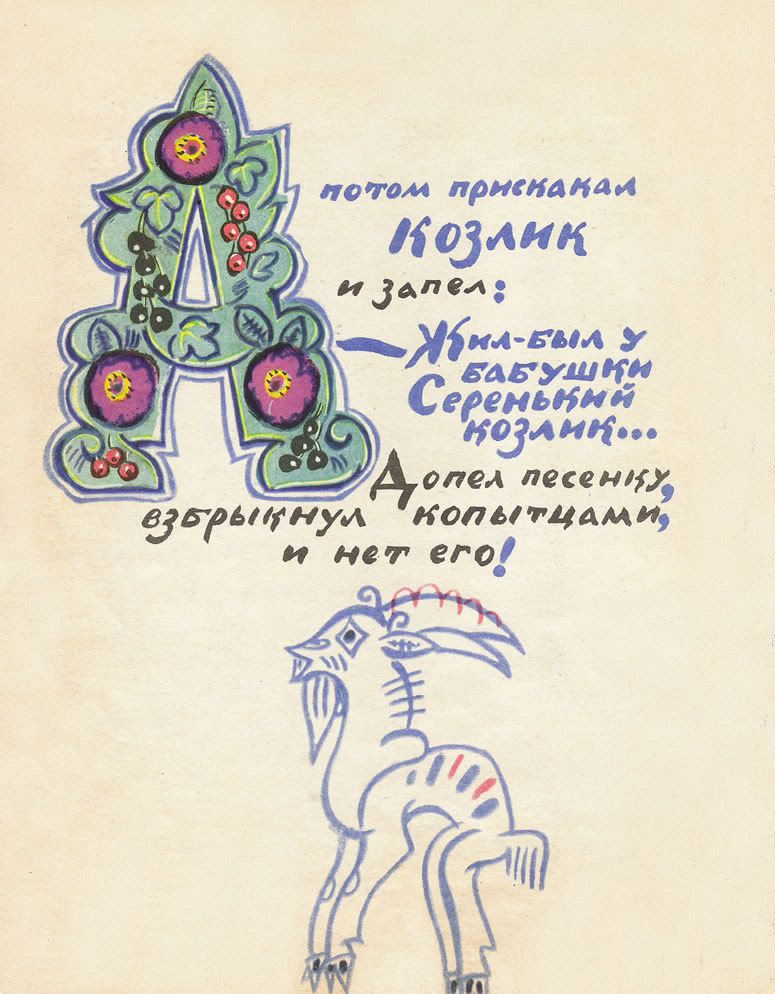 А
потом прискакал
Козлик
и запел:
— Жил-был у
бабушки
Серенький
козлик...
Допел песенку,
взбрыкнул копытцами,
и нет его!